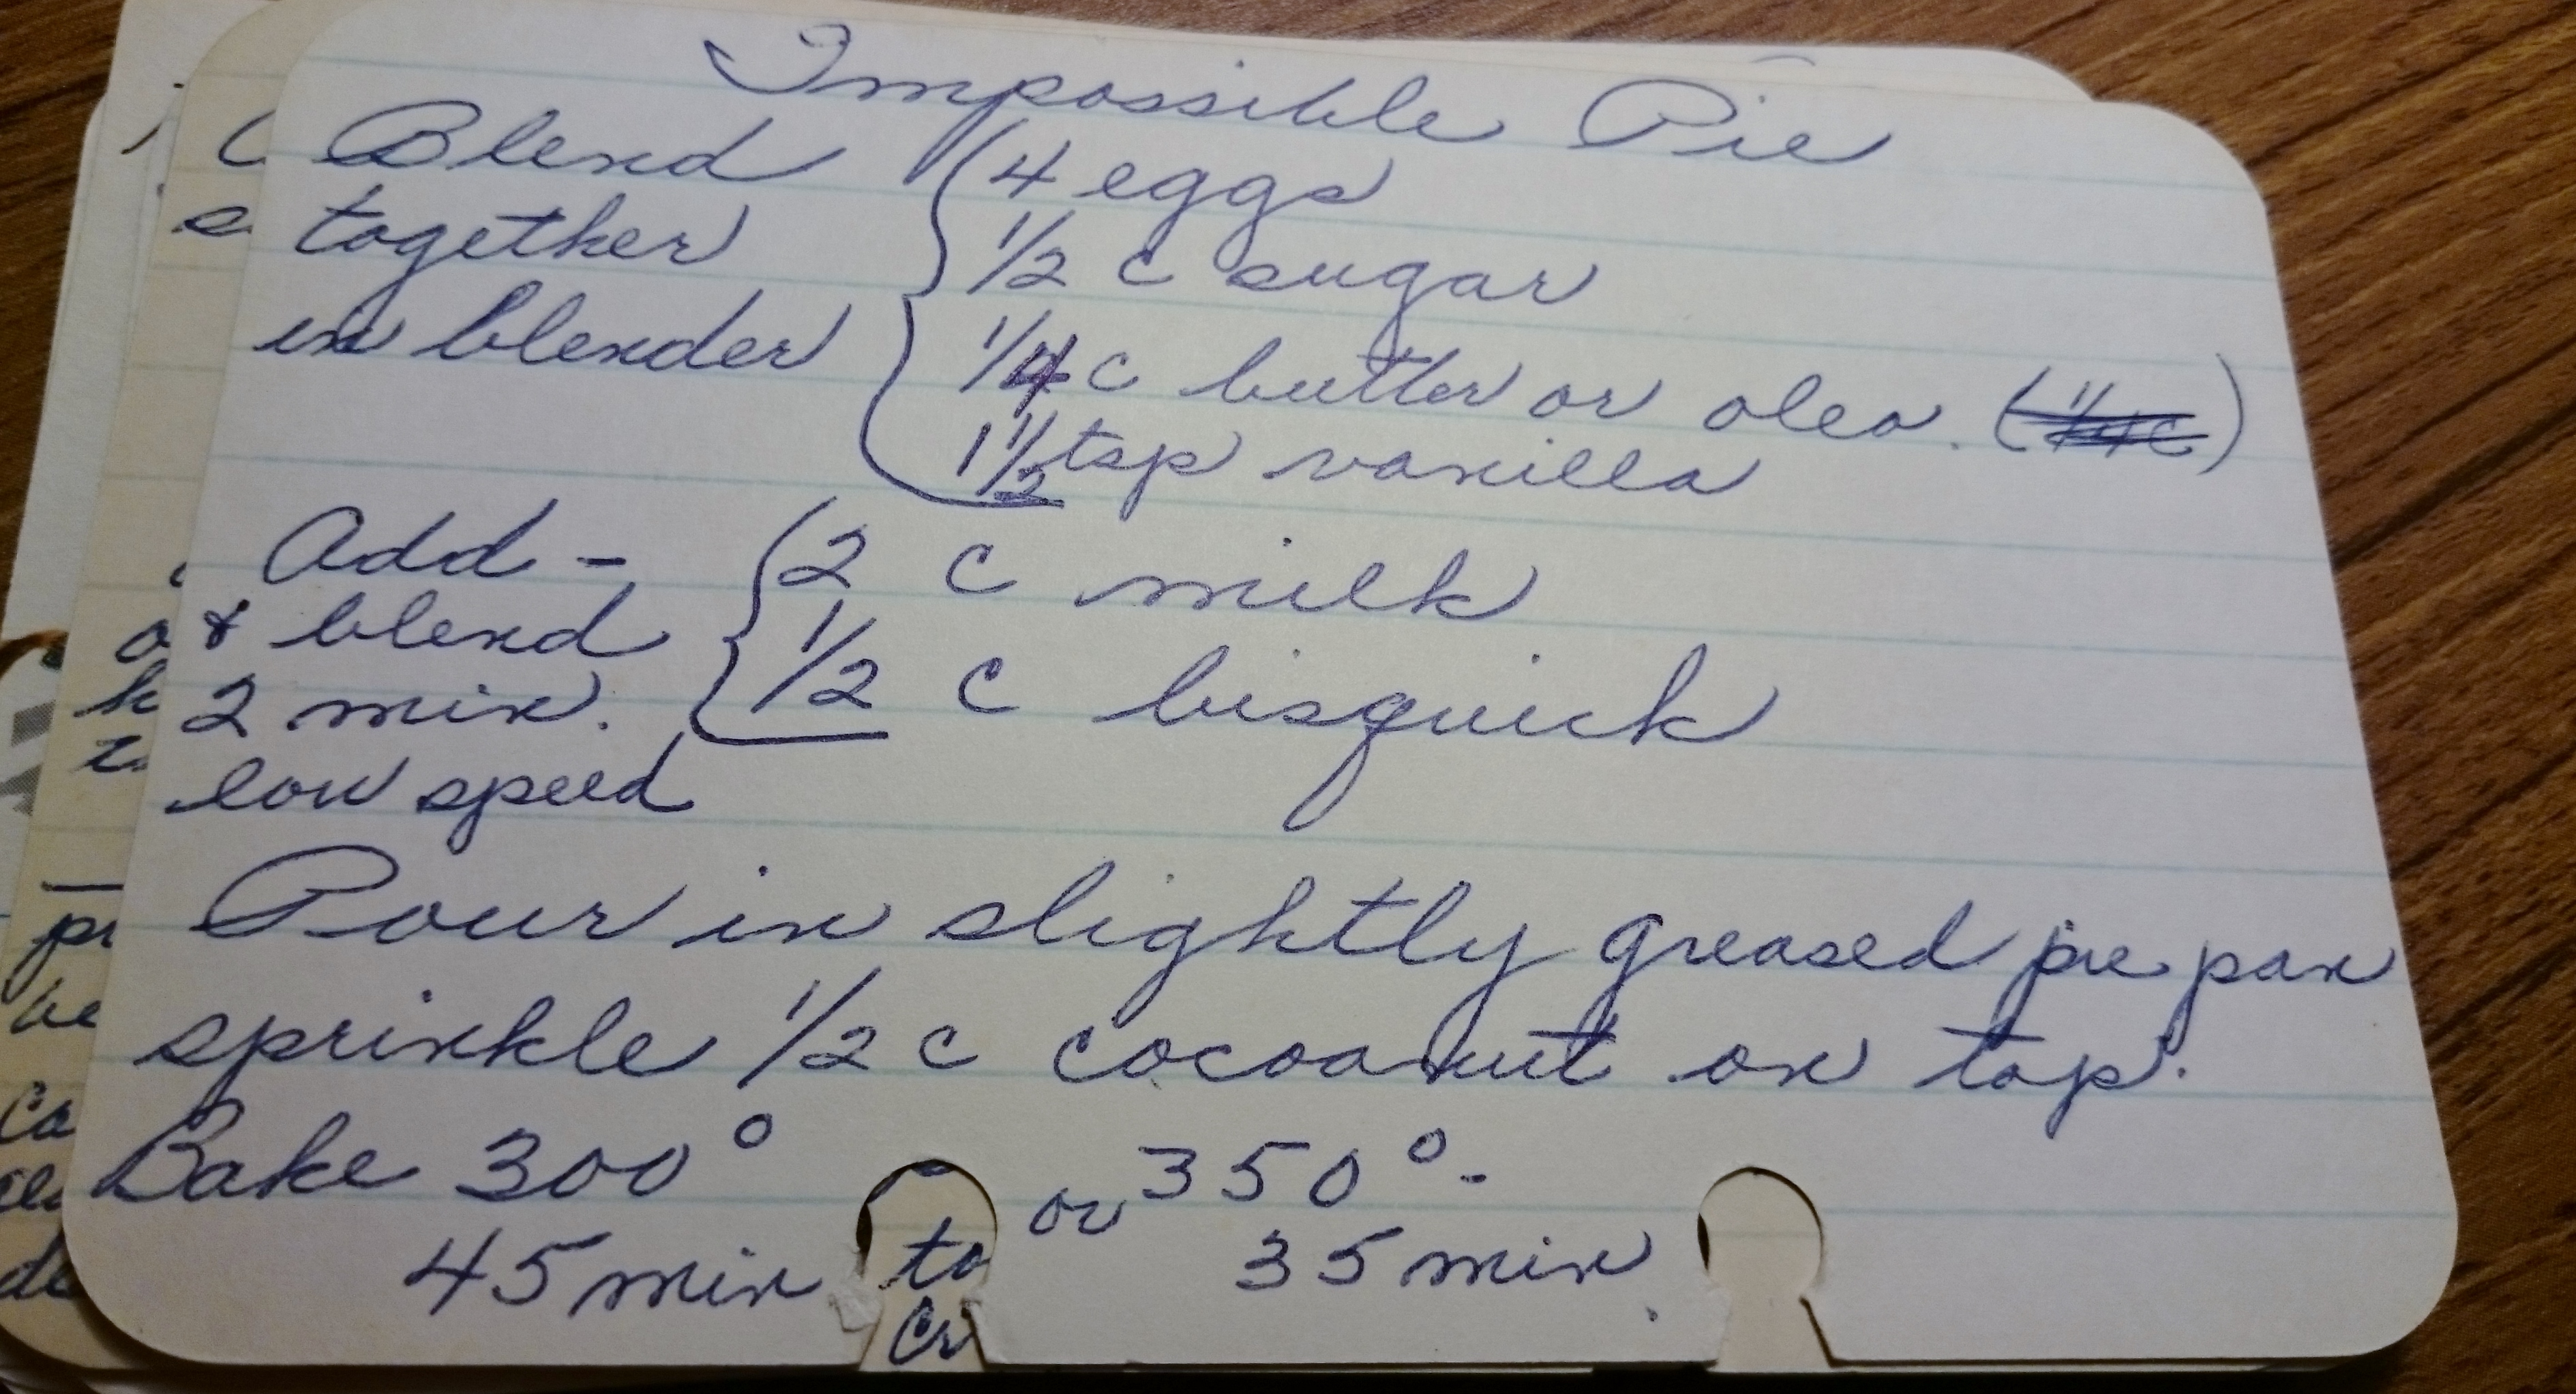 Impossible Pie
Blend together in blender
4 eggs
1/2 c sugar
1/4 c butter or oleo. (1/4 c)
1 1/2 tsp vanilla
Add -
& blend
2 min.
low speed
2 c milk
1/2 c bisquick
Pour in slightly greased pie pan
sprinkle 1/2 c cocoanut on top.
Bake 300° or 350°-
45 min 35 min.